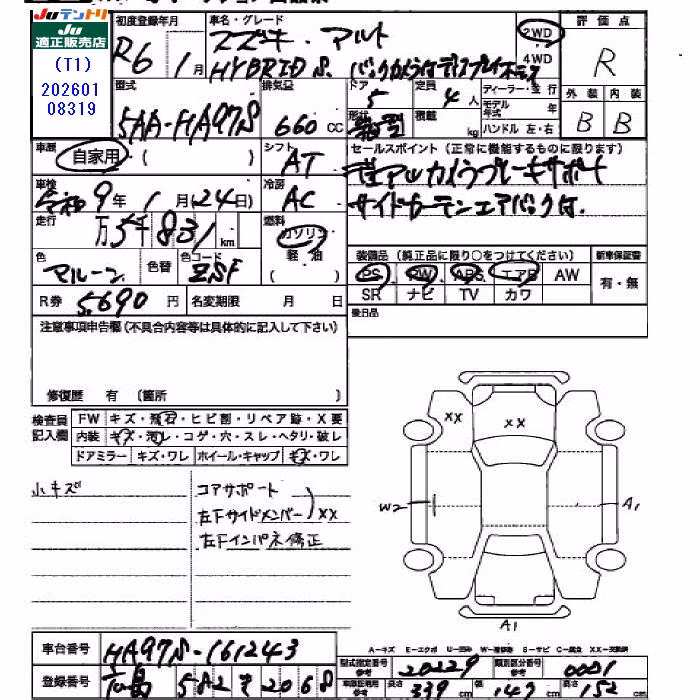 JUテントリ
JU
適正販売店
(T1)
202601
08319
初度登録年月
R6年1月
車名・グレード
スズキ アルト
HYBRID S バックカメラ付ディスプレイオーディオ
2WD
4WD
評価点
R
外装 内装
B B
型式
5AA-HA97S
排気量
660 CC
ドア
5
形状
箱型
定員
4 人
積載
kg
ディーラー・並行
モデル年式 年
ハンドル 左・右
車歴
自家用・( )
シフト
AT
セールスポイント (正常に機能するものに限ります)
デュアルカメラブレーキサポート
サイドカーテンエアバック付
車検
令和9年1月(24日)
冷房
AC
走行
万5千831km
燃料
ガソリン
軽油
( )
色
マルーン
色替
色コード
ZSF
装備品 (純正品に限り○をつけてください)
PS PW ABS エアB AW
SR ナビ TV カワ
新車保証書
有・無
R券 5,690 円
名変期限 月 日
後日品
注意事項申告欄 (不具合内容等は具体的に記入して下さい)
修復歴 有 〔箇所 〕
検査員
記入欄
FW キズ・飛石・ヒビ割・リペア跡・X要
内装 キズ・汚レ・コゲ・穴・スレ・ヘタリ・破レ
ドアミラー キズ・ワレ ホイール・キャップ キズ・ワレ
小キズ
コアサポート
左フサイドメンバー XX
左フインパネ修正
XX
XX
W2
A1
A1
車台番号
HA97S-161243
登録番号
広島 582 き 2068
A-キズ E-エクボ U-凹み W-補修跡 S-サビ C-腐食 XX-交換済
型式指定番号
参考
20229
類別区分番号
参考
0001
車庫証明用
参考
長さ 339 cm
幅 147 cm
高さ 152 cm